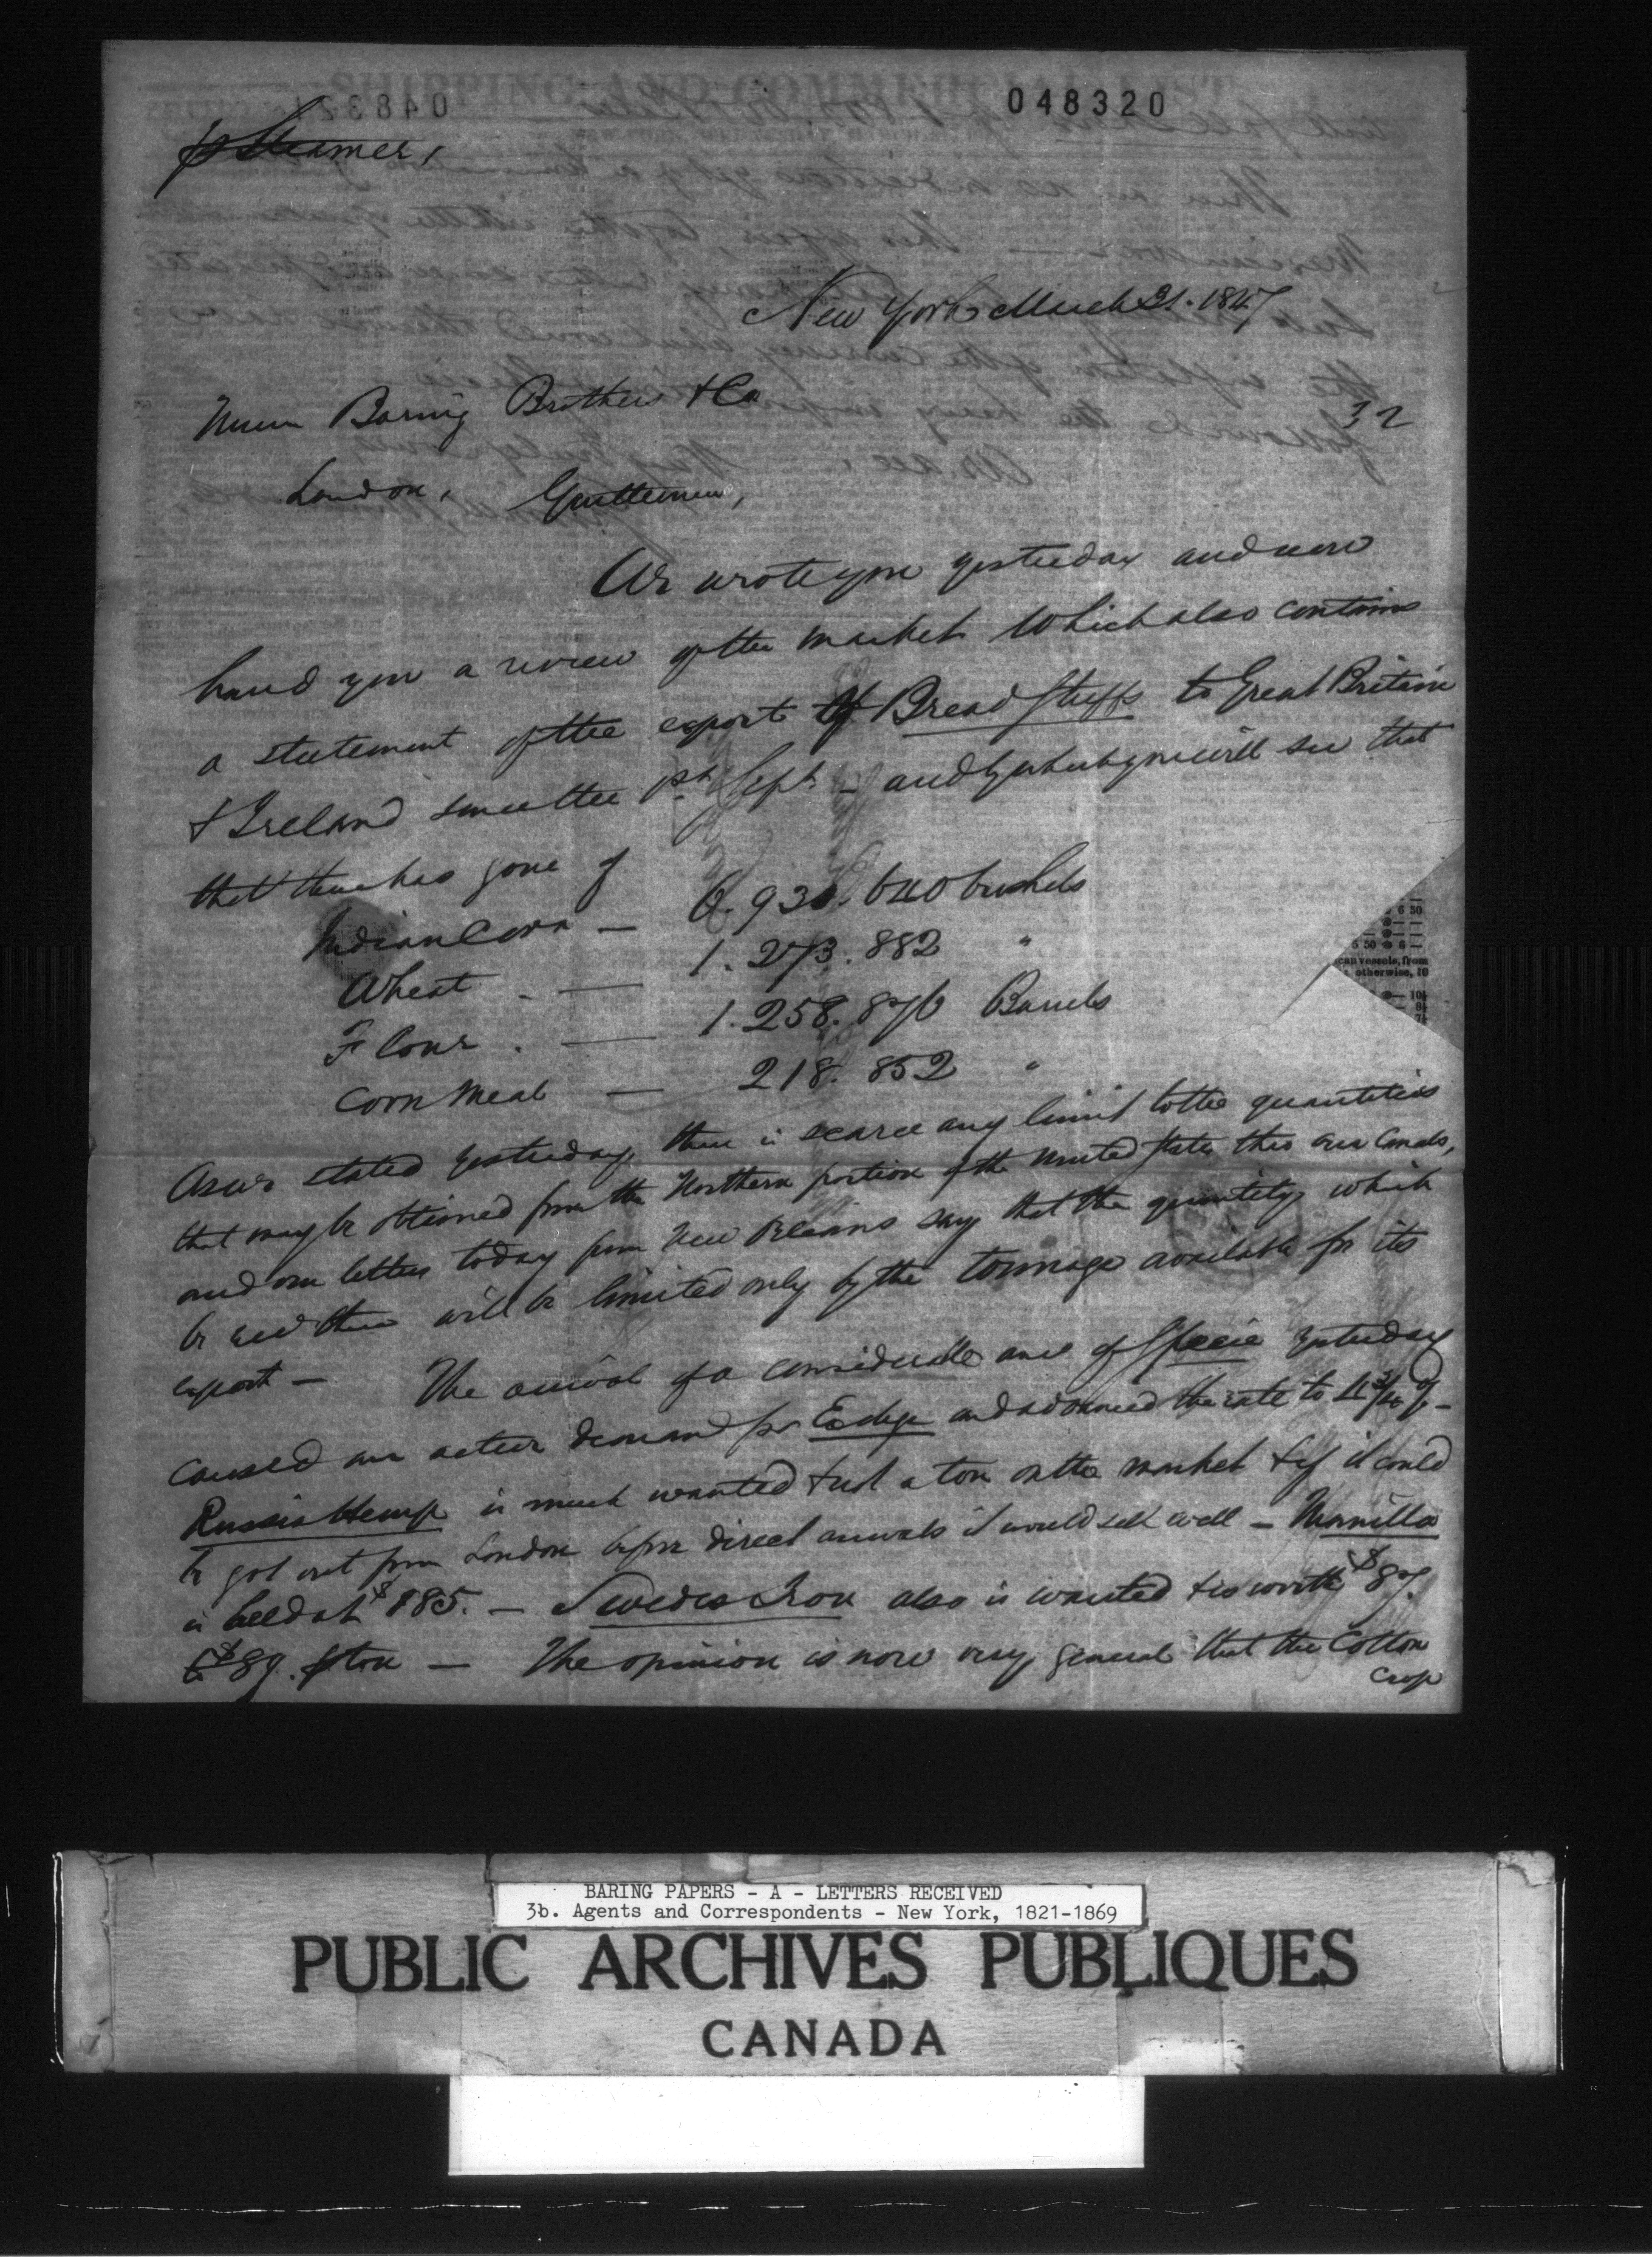 048320
p Steamer,
New York March 31. 1847
32
Messrs Baring Brothers & Co
London, Gentlemen,
We wrote you yesterday and now
hand you a review of the market which also contains
a statement of the export of Bread Stuffs to Great Britain
& Ireland since the 1st Sept - and whereby you will see that
that there has gone of
Indian Corn - 6.930. bushels
Wheat - 1.273.882 "
Flour - 1.258.876 Barrels
Corn Meal - 218.852 "
As we stated yesterday, there is scarce any limit to the quantities
that may be obtained from the Northern portion of the United States thro our Canals,
and our letters today from New Orleans say that the quantity which
be there will be limited only by the tonnage available for its
export - The arrival of a considerable amt of Specie yesterday
caused an active demand for Exchge and advanced the rate to
Russia Hemp is much wanted & not a ton on the market & if it could
be got out from London before direct arrivals it would sell well - Manilla
is held at $185. - Swedes Iron also is wanted & is worth $87.
@ $89. p ton - The opinion is now very general that the Cotton
crop
6 50
5 50 @ 6 —
can vessels, from
otherwise, 10
BARING PAPERS - A - LETTERS RECEIVED
3b. Agents and Correspondents - New York, 1821-1869
PUBLIC ARCHIVES PUBLIQUES
CANADA